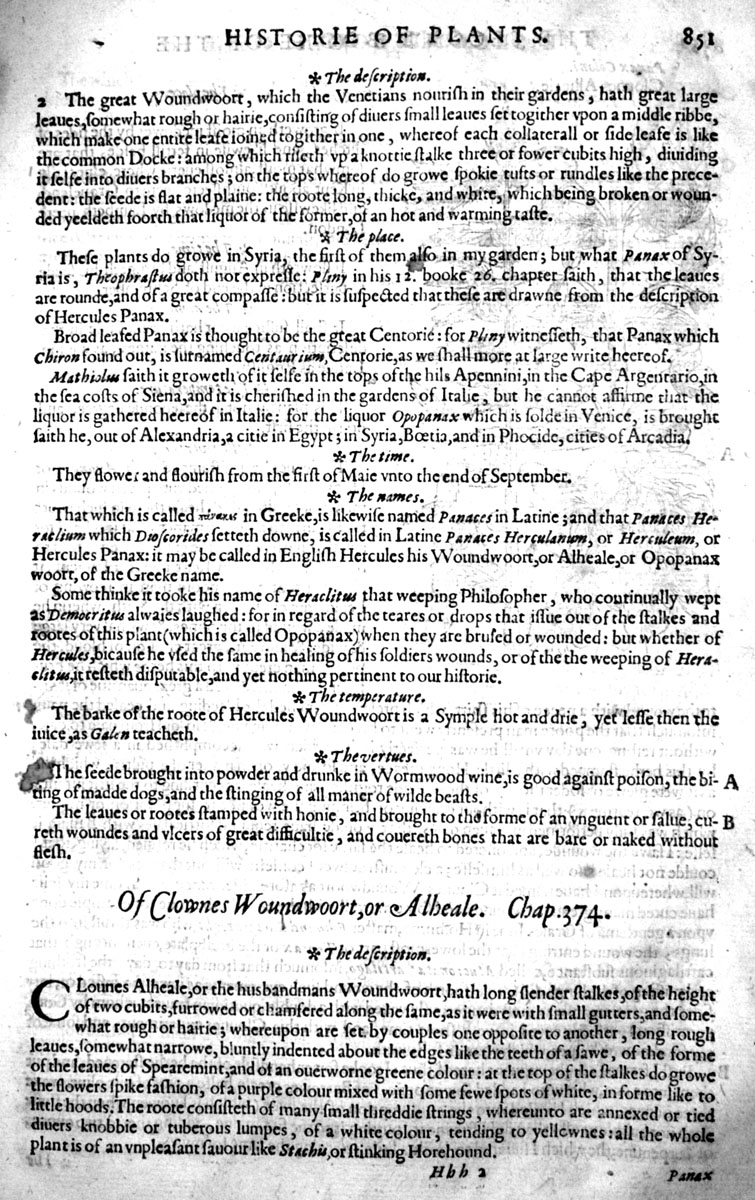 HISTORIE OF PLANTS. 851
* The deſcription.
2 The great Woundwoort, which the Venetians nouriſh in their gardens, hath great large
leaues, ſomewhat rough or hairie, conſiſting of diuers ſmall leaues ſet togither vpon a middle ribbe,
which make one entire leafe ioined togither in one, whereof each collaterall or ſide leafe is like
the common Docke: among which riſeth vp a knottie ſtalke three or fower cubits high, diuiding
it ſelfe into diuers branches; on the tops whereof do growe ſpokie tufts or rundles like the prece-
dent: the ſeede is flat and plaine: the roote long, thicke, and white, which being broken or woun-
ded yeeldeth foorth that liquor of the former, of an hot and warming taſte.
* The place.
Theſe plants do growe in Syria, the firſt of them alſo in my garden; but what Panax of Sy-
ria is, Theophraſtus doth not expreſſe: Pliny in his 12. booke 26. chapter ſaith, that the leaues
are rounde, and of a great compaſſe: but it is ſuſpected that theſe are drawne from the deſcription
of Hercules Panax.
Broad leafed Panax is thought to be the great Centorie: for Pliny witneſſeth, that Panax which
Chiron found out, is ſurnamed Centaurium, Centorie, as we ſhall more at large write heereof.
Mathiolus ſaith it groweth of it ſelfe in the tops of the hils Apennini, in the Cape Argentario, in
the ſea coſts of Siena, and it is cheriſhed in the gardens of Italie, but he cannot affirme that the
liquor is gathered heereof in Italie: for the liquor Opopanax which is ſolde in Venice, is brought
ſaith he, out of Alexandria, a citie in Egypt; in Syria, Bœtia, and in Phocide, cities of Arcadia.
* The time.
They flower and flouriſh from the firſt of Maie vnto the end of September.
* The names.
That which is called in Greeke, is likewiſe named Panaces in Latine; and that Panaces He-
raclium which Dioſcorides ſetteth downe, is called in Latine Panaces Herculanum, or Herculeum, or
Hercules Panax: it may be called in Engliſh Hercules his Woundwoort, or Alheale, or Opopanax
woort, of the Greeke name.
Some thinke it tooke his name of Heraclitus that weeping Philoſopher, who continually wept
as Democritus alwaies laughed: for in regard of the teares or drops that iſſue out of the ſtalkes and
rootes of this plant (which is called Opopanax) when they are bruſed or wounded: but whether of
Hercules, bicauſe he vſed the ſame in healing of his ſoldiers wounds, or of the the weeping of Hera-
clitus, it reſteth diſputable, and yet nothing pertinent to our hiſtorie.
* The temperature.
The barke of the roote of Hercules Woundwoort is a Symple hot and drie, yet leſſe then the
iuice, as Galen teacheth.
* The vertues.
The ſeede brought into powder and drunke in Wormwood wine, is good againſt poiſon, the bi- A
ting of madde dogs, and the ſtinging of all maner of wilde beaſts.
The leaues or rootes ſtamped with honie, and brought to the forme of an vnguent or ſalue, cu- B
reth woundes and vlcers of great difficultie, and couereth bones that are bare or naked without
fleſh.
Of Clownes Woundwoort, or Alheale. Chap. 374.
* The deſcription.
CLounes Alheale, or the husbandmans Woundwoort, hath long ſlender ſtalkes, of the height
of two cubits, furrowed or chamfered along the ſame, as it were with ſmall gutters, and ſome-
what rough or hairie; whereupon are ſet by couples one oppoſite to another, long rough
leaues, ſomewhat narrowe, bluntly indented about the edges like the teeth of a ſawe, of the forme
of the leaues of Spearemint, and of an ouerworne greene colour: at the top of the ſtalkes do growe
the flowers ſpike faſhion, of a purple colour mixed with ſome fewe ſpots of white, in forme like to
little hoods. The roote conſiſteth of many ſmall threddie ſtrings, whereunto are annexed or tied
diuers knobbie or tuberous lumpes, of a white colour, tending to yellownes: all the whole
plant is of an vnpleaſant ſauour like Stachis, or ſtinking Horehound.
Hhh 2 Panax